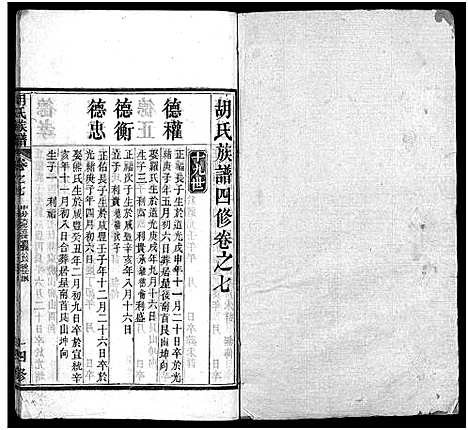 胡氏族譜四修卷之七
十九世
德權
正福長子於道光庚申年十一月二十日卒於光
緒庚子年五月初六日葬居屋後南首艮山坤向
娶羅氏生於道光庚戌年九月十六日
生子三利富利貴承肇德倫利盛
德衡
正福次子於咸豐辛亥年八月十六日
立子一利貴
德忠
正佑長子生於年十二月二十六日卒於
光緒庚子年四月初六日
娶熊氏生於咸豐癸丑年二月初九日卒於宣統辛
亥年十一月初八日合葬居屋南首艮山坤向
生子一利福
胡氏族譜
卷之七
四修